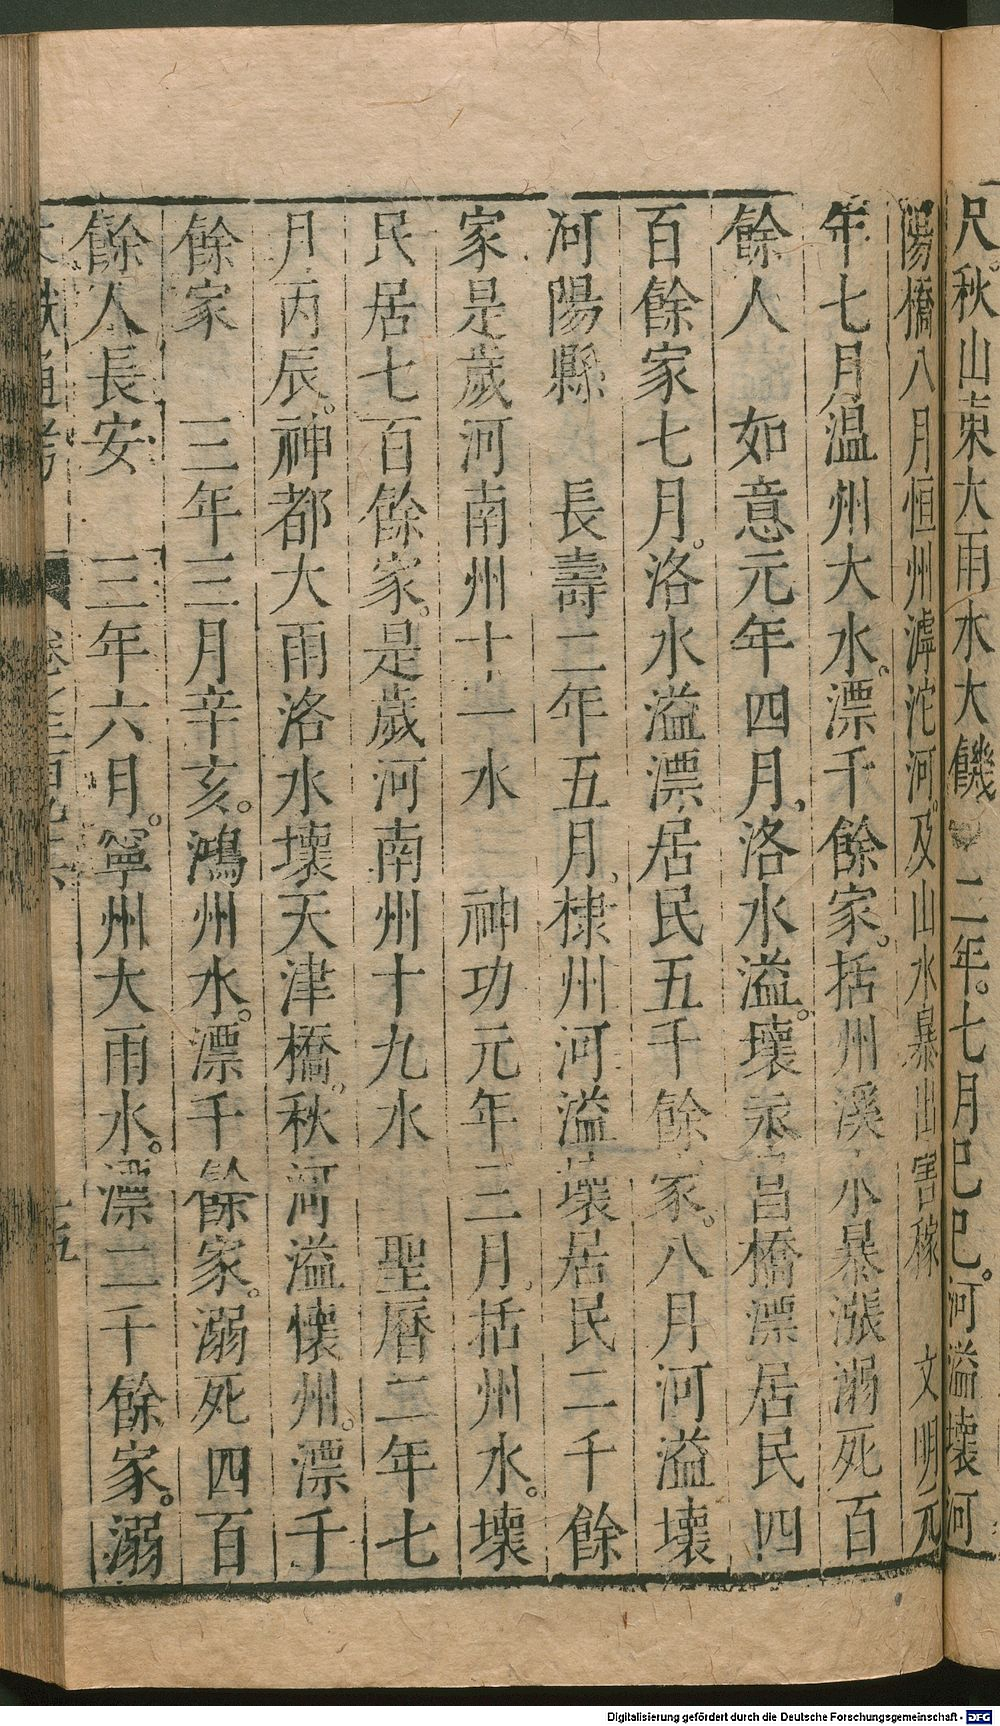 尺。秋山東大雨水大饑 二年。七月己巳。河溢壞河
陽橋八月恒州滹沱河。及山水暴出害稼 文明元
年七月温州大水。漂千餘家。括州溪水暴漲溺死百
餘人 如意元年四月洛水溢。壞永昌橋漂居民四
百餘家七月。洛水溢漂居民五千餘家。八月河溢壞
河陽縣 長壽二年五月棣州河溢壞居民二千餘
家是歲河南州十一水 神功元年三月括州水。壞
民居七百餘家。是歲河南州十九水 聖曆二年七
月丙辰。神都大雨洛水壞天津橋。秋河溢懷州。漂千
餘家 三年三月辛亥。鴻州水。漂千餘家。溺死四百
餘人長安 三年六月。寧州大雨水。漂二千餘家。溺
獻通考 卷二百九十六 十五
Digitalisierung gefördert durch die Deutsche Forschungsgemeinschaft - DFG